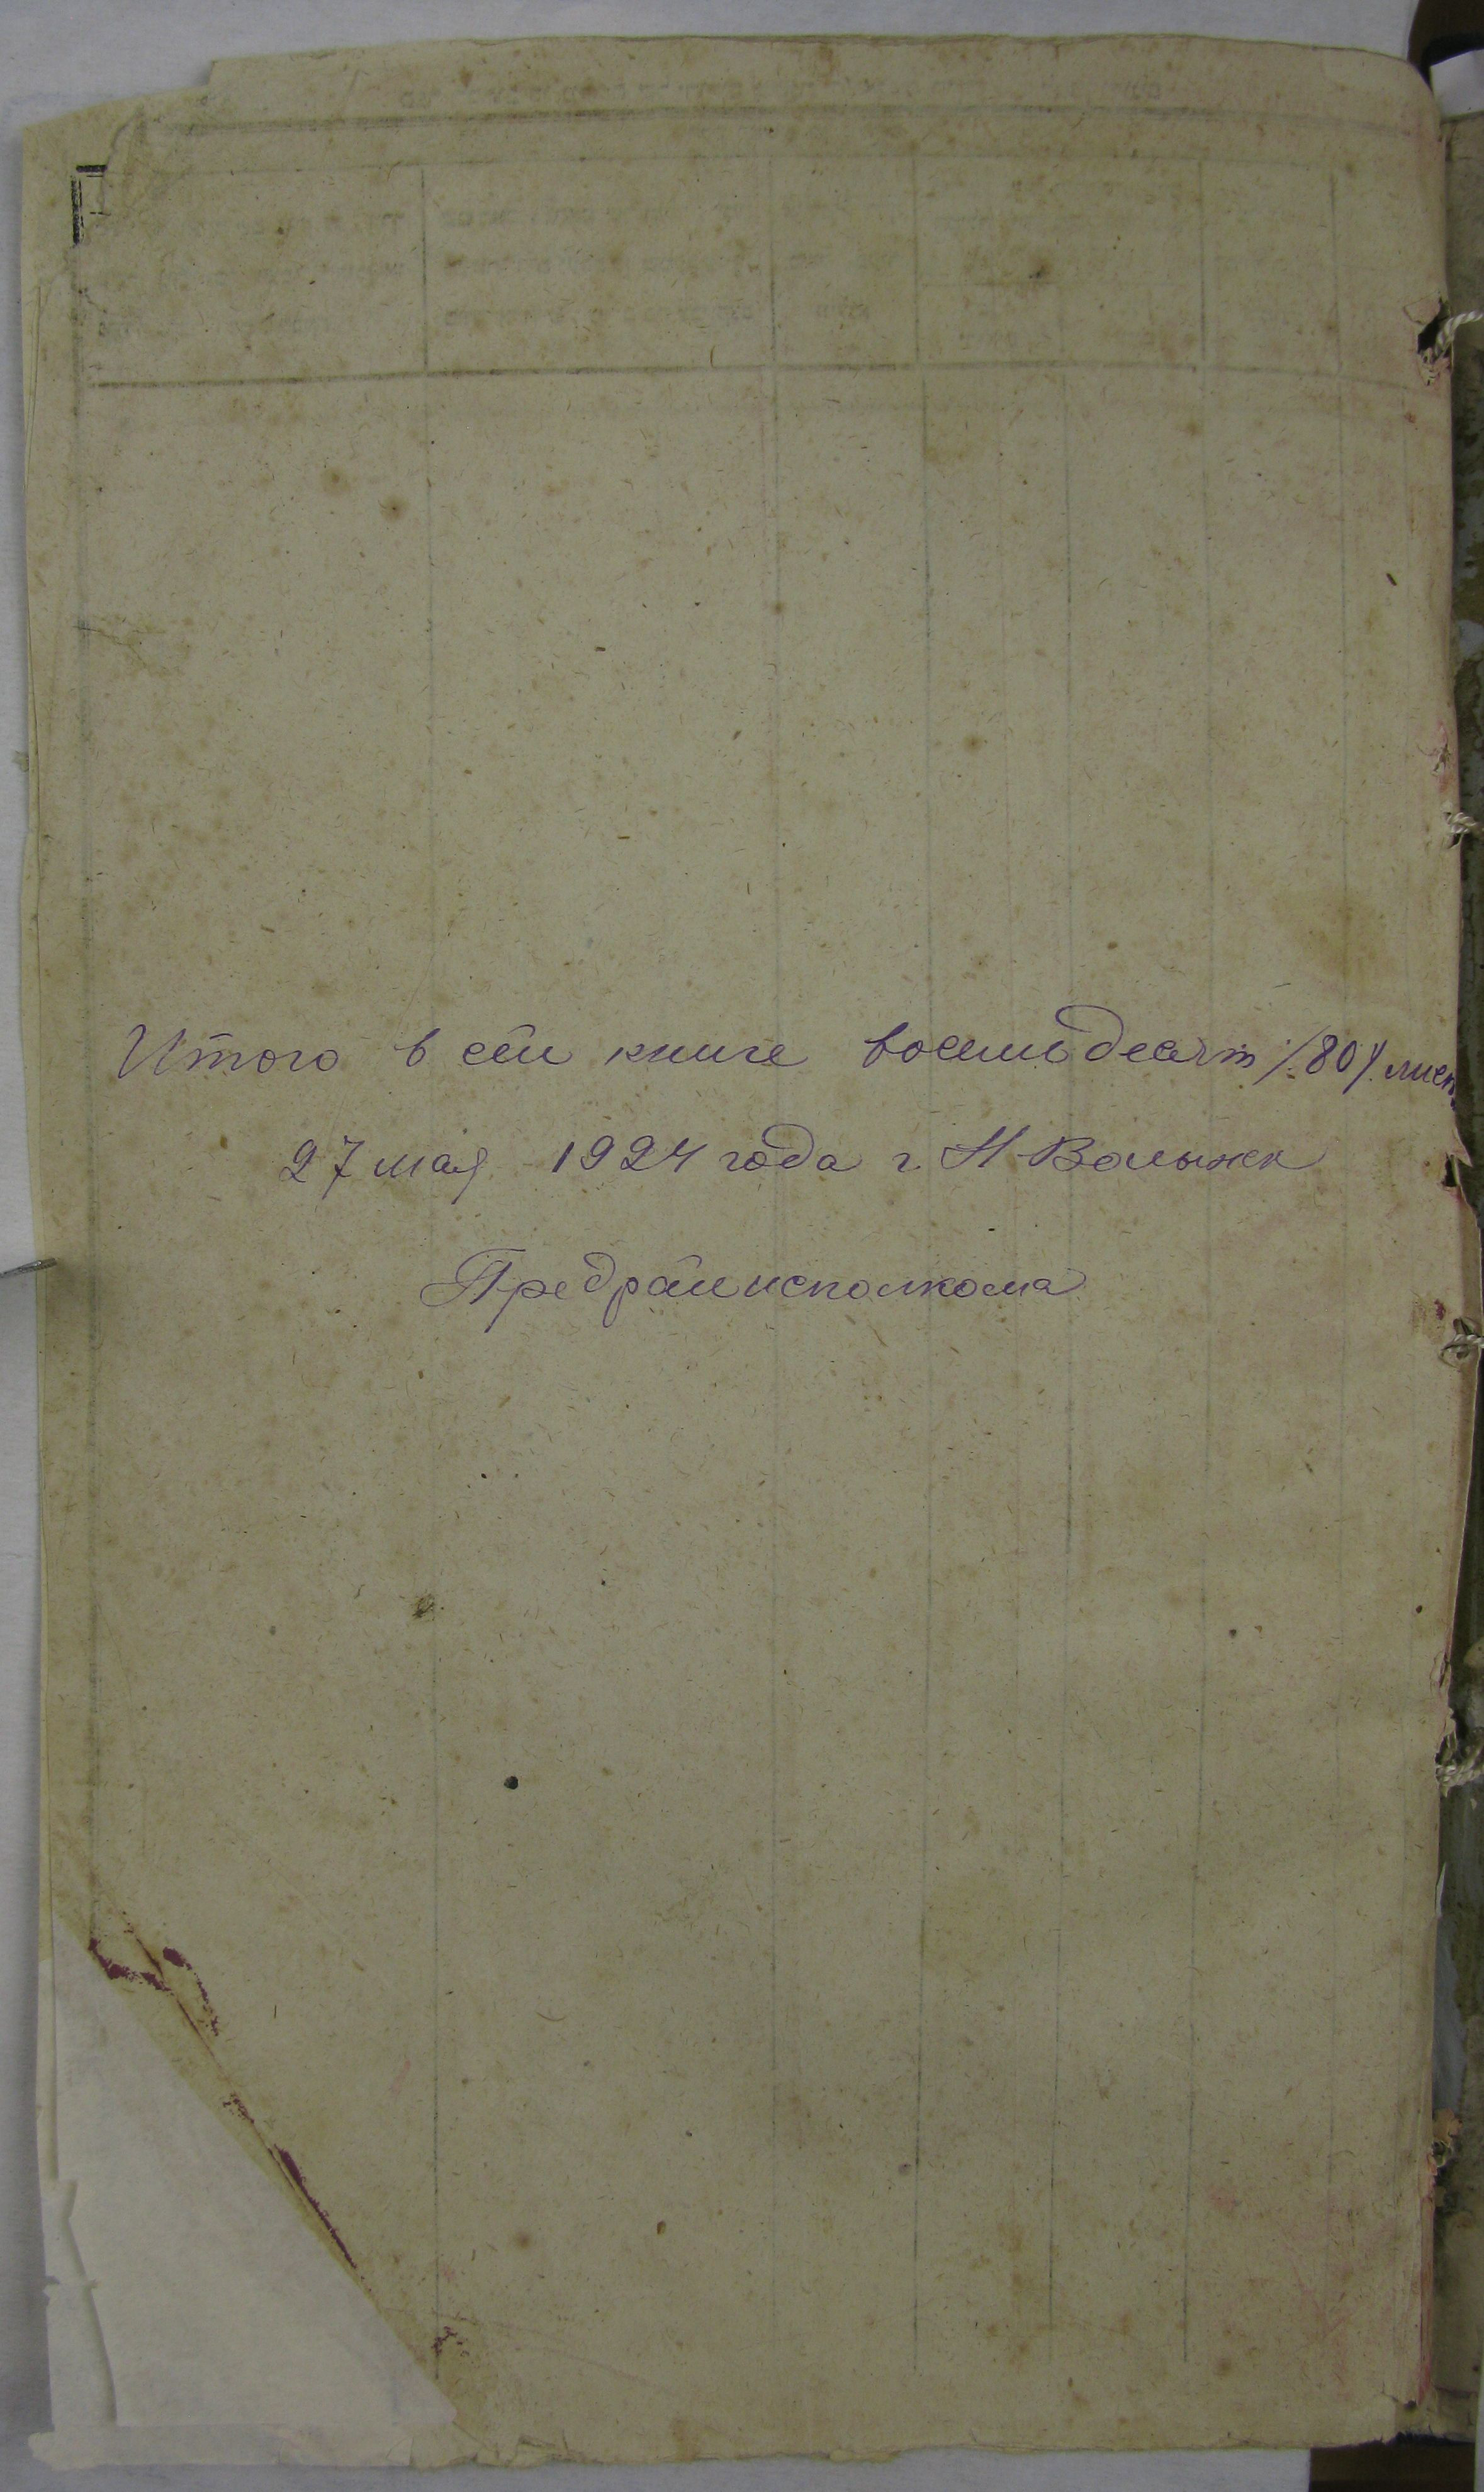 Итого в сей книге восемьдесят /80/ лист
27 мая 1924 года г. Н-Волынск
Предрайисполкома